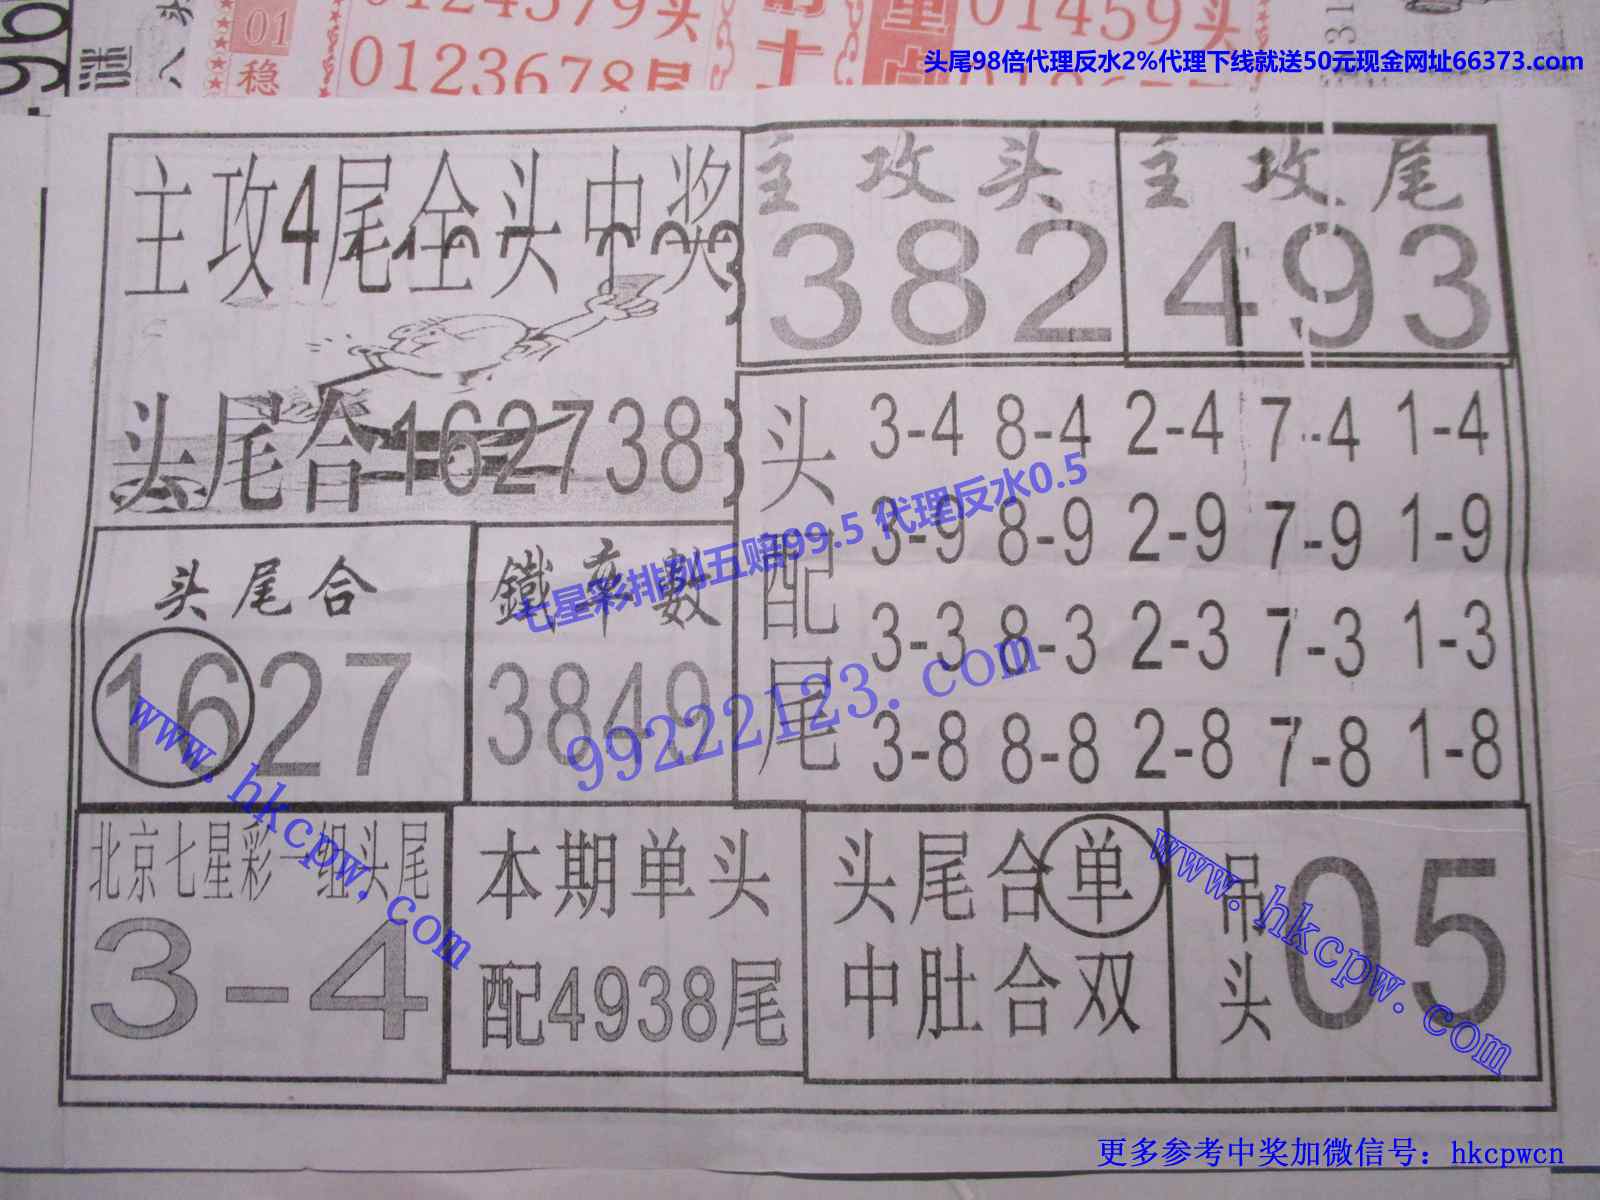 01
稳
0124579头
0123678尾
01459头
头尾98倍代理反水2%代理下线就送50元现金网址66373.com
主攻4尾全头中奖
头尾合162738
主攻头
382
主攻尾
493
头配尾
3-4 8-4 2-4 7-4 1-4
3-9 8-9 2-9 7-9 1-9
3-3 8-3 2-3 7-3 1-3
3-8 8-8 2-8 7-8 1-8
七星彩排列五赔99.5 代理反水0.5
99222123.com
头尾合
1627
鐵率數
3849
www.hkcpw.com
北京七星彩一组头尾
3-4
本期单头
配4938尾
头尾合单
中肚合双
吊头
05
www.hkcpw.com
更多参考中奖加微信号：hkcpwcn